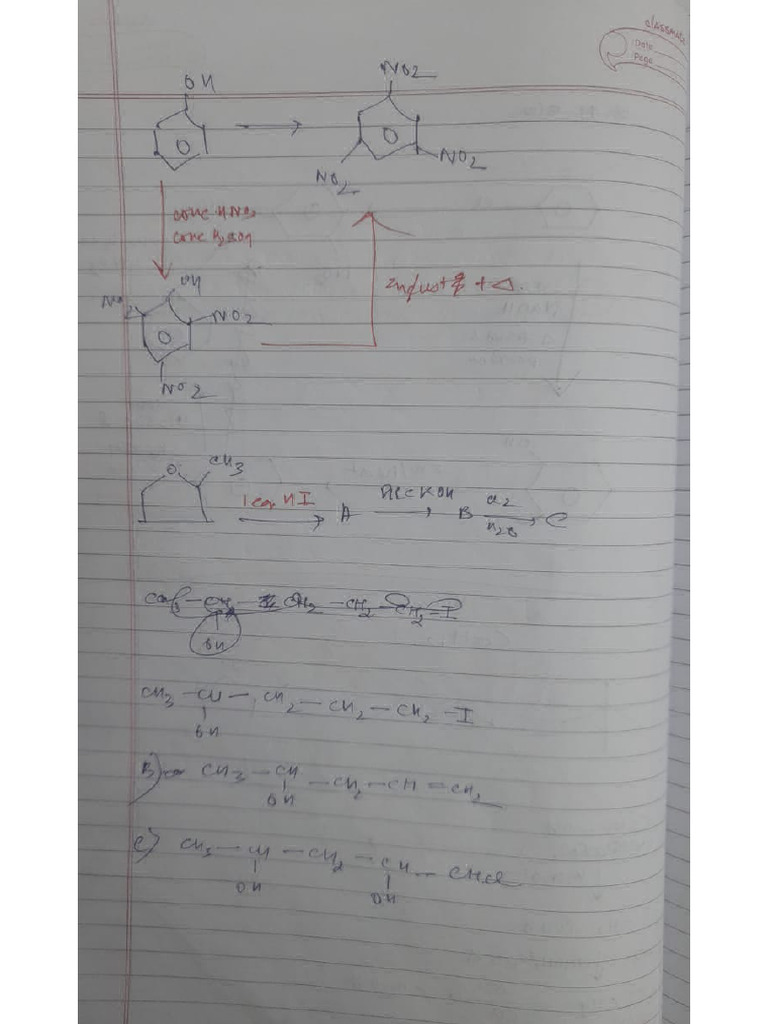 classmate
Date
Page
OH
NO2
NO2
NO2
conc HNO3
conc H2SO4
OH
NO2
NO2
NO2
Zn dust + Δ.
O
CH3
1 eq. HI
A
Alc KOH
B
Cl2
H2O
C
CH3 - CH - CH2 - CH2 - CH2 - I
OH
CH3 - CH - CH2 - CH2 - CH2 - I
OH
B) CH3 - CH - CH2 - CH = CH2
OH
C) CH3 - CH - CH2 - CH - CH2Cl
OH
OH